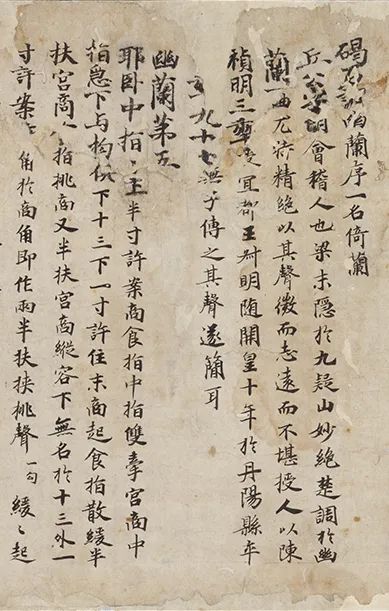 碣石調幽蘭序一名倚蘭
丘公字明會稽人也梁末隱於九疑山妙絕楚調於幽
蘭一曲尤特精絕以其聲微而志遠而不堪授人以陳
禎明三年授宜都王叔明隨開皇十年於丹陽縣卒
年九十七無子傳之其聲遂簡耳
幽蘭第五
耶臥中指半寸許案商食指中指雙牽宮商中
指急下与拘俱下十三下一寸許住末商起食指散緩半
扶宮商食指挑商又半扶宮商縱容下無名於十三外一
寸許案角於商角即作兩半扶挾挑聲一句緩〻起